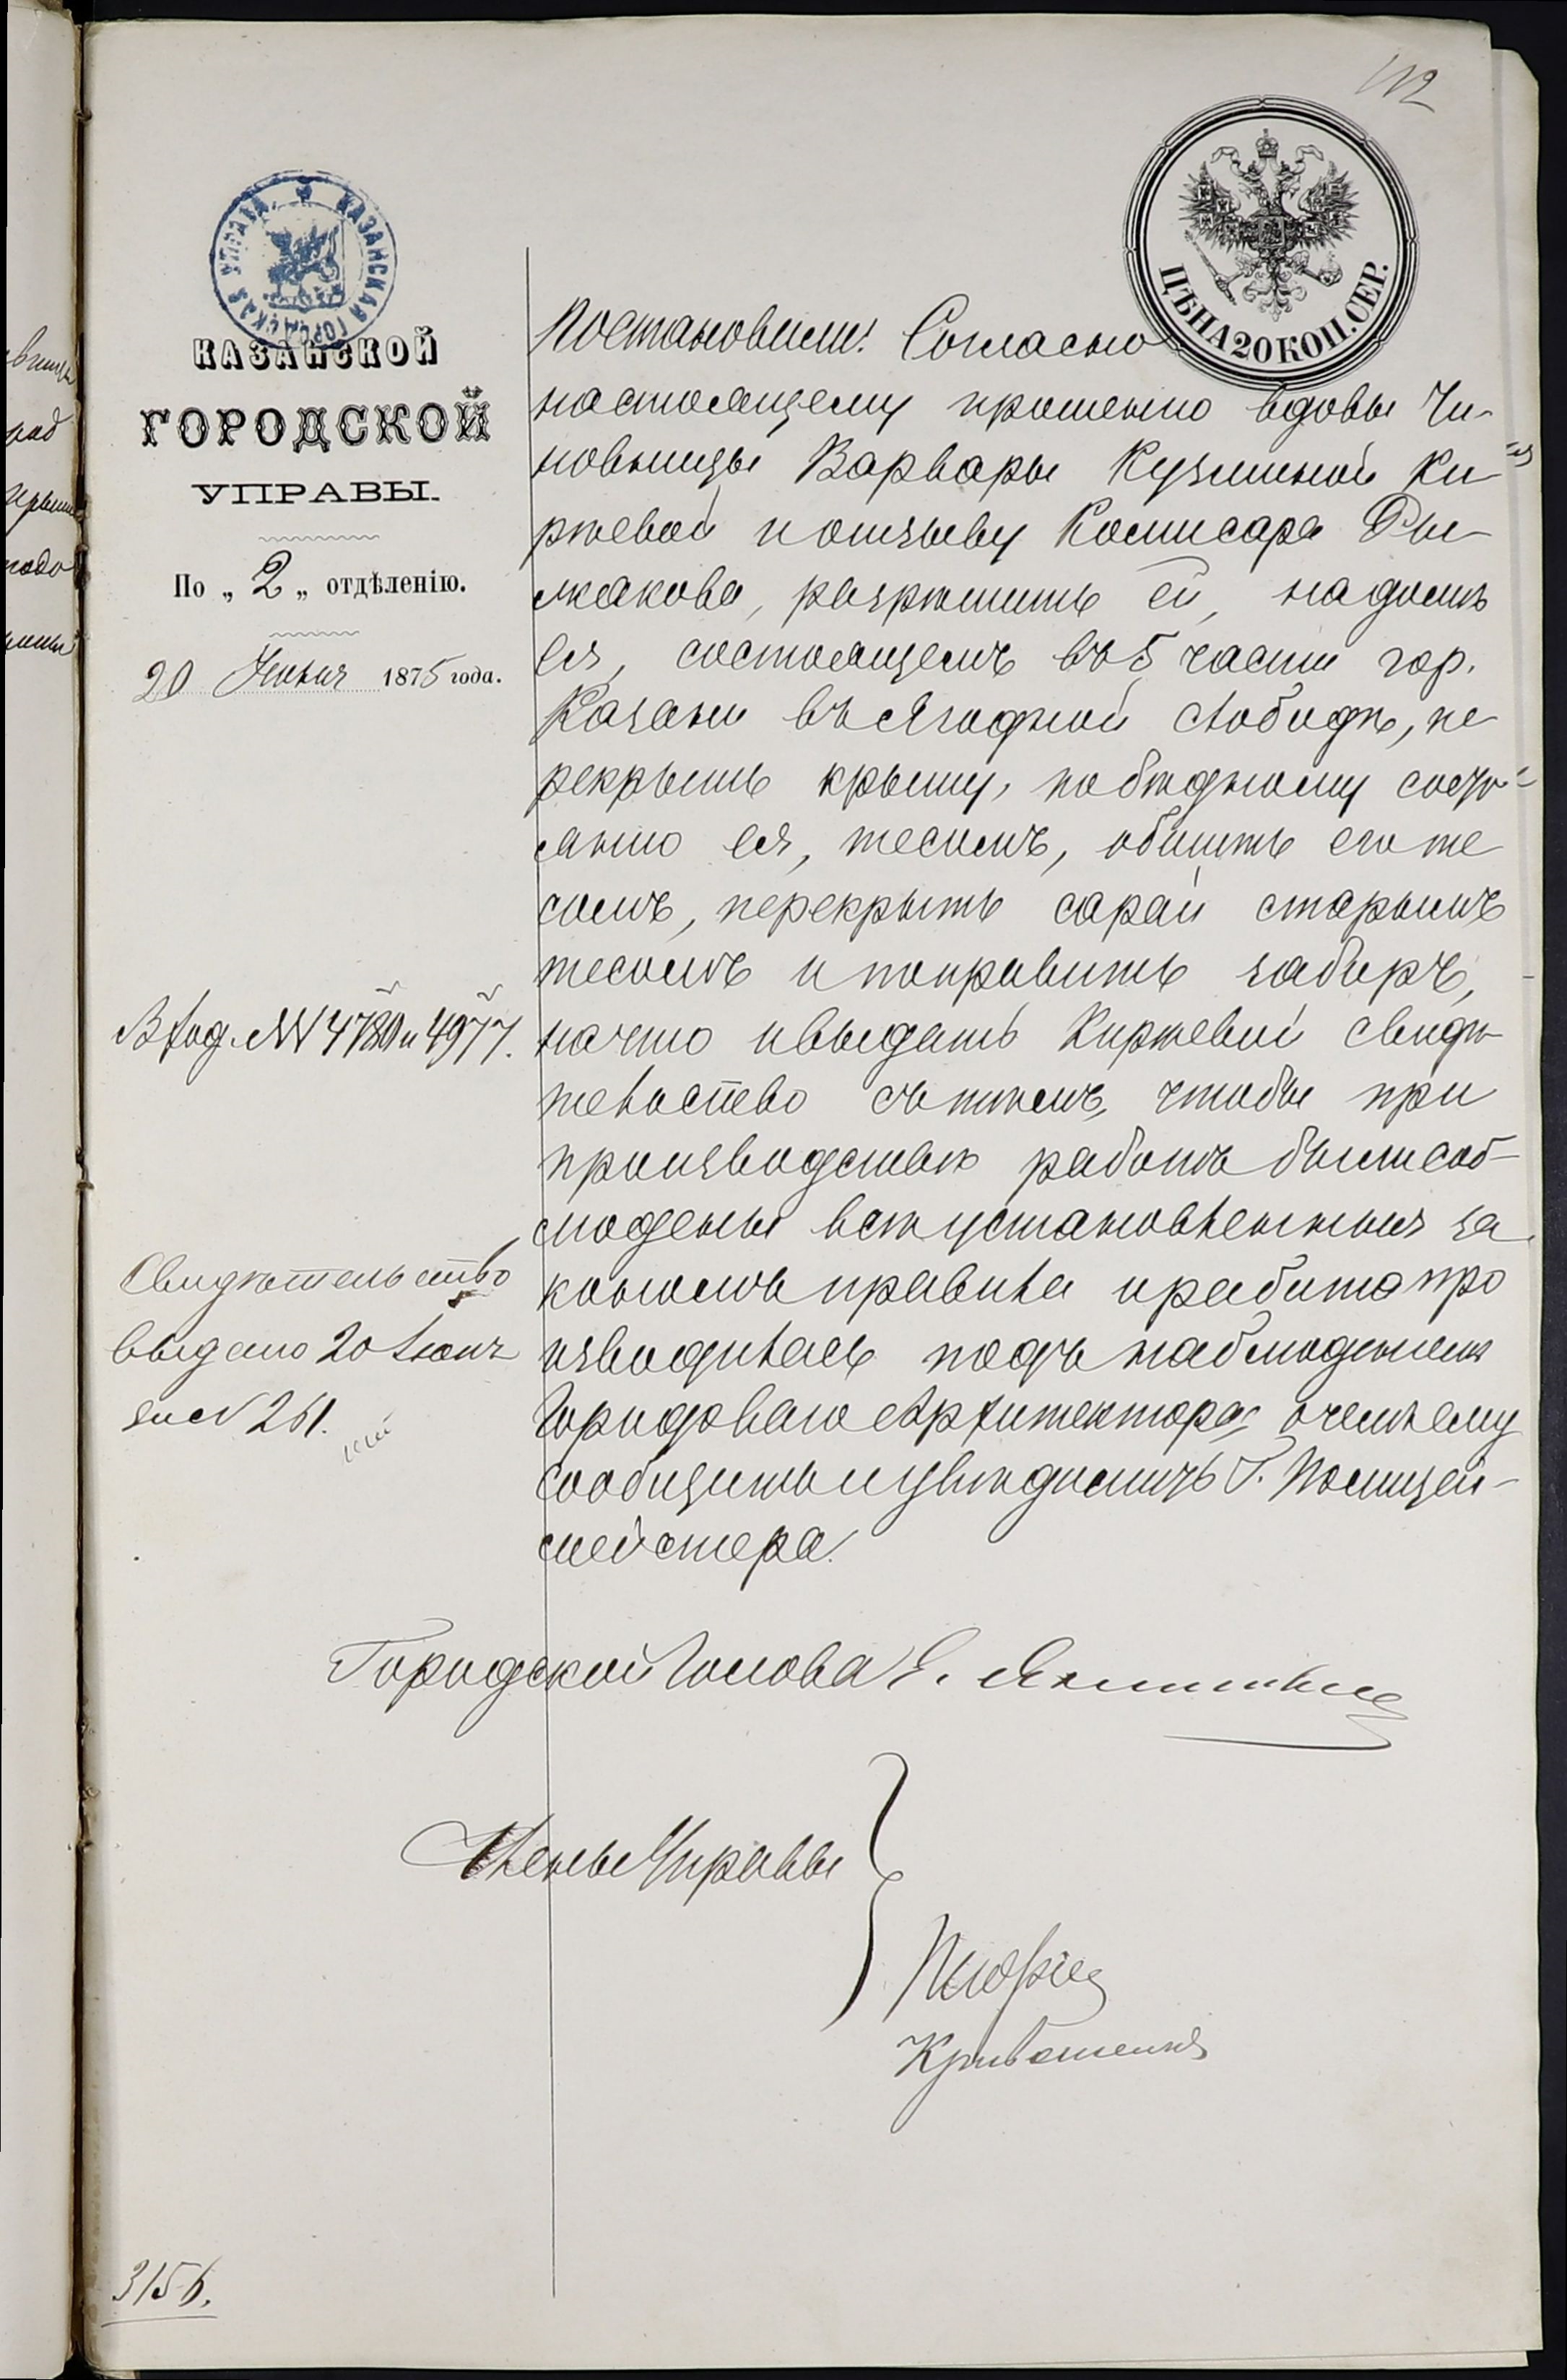 112
КАЗАНСКАЯ ГОРОДСКАЯ УПРАВА
ЦѢНА 20 КОП. СЕР.
КАЗАНСКОЙ
ГОРОДСКОЙ
УПРАВЫ.
По „2„ отдѣленію.
20 Іюня 1875 года.
Вход. №№ 4780 и 4977.
Свидѣтельство
выдано 20 Іюня
за № 261.
Постановили: Согласно
настоящему прошенію вдовы Чи-
новницы Варвары Кузминой Ки-
ряевой и отзыву Комисара
разрѣшить ей, на домѣ
ея, состоящемъ въ 5 части гор.
Казани въ Ягодной слободѣ, пе
рекрыть крышу, по бѣдному состо-
янію ея, тесомъ, обшить его те
сомъ, перекрыть сарай старымъ
тесомъ и поправить заборъ,
на что и выдать Киряевой свидѣ
тельство съ тѣмъ, чтобы при
производствѣ работъ были соб-
людены всѣ установленныя за
кономъ правила и работа про
изводилась подъ наблюденіемъ
Городоваго Архитектора, о чемъ ему
сообщить и увѣдомить Г. Полицей-
мейстера.
Городской Голова Е.
Члены Управы
3156.